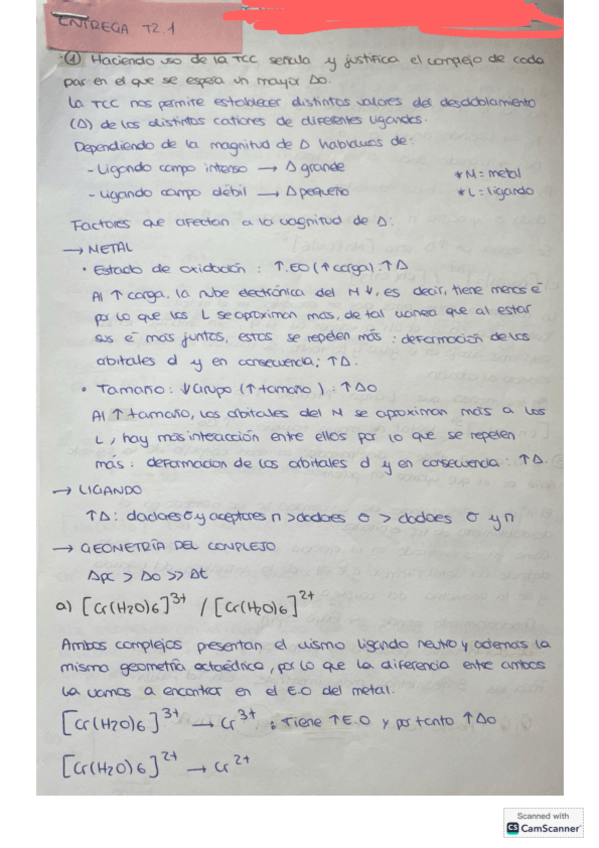 ENTREGA T2.1
① Haciendo uso de la TCC señala y justifica el complejo de cada
par en el que se espera un mayor Δo.
La TCC nos permite establecer distintos valores del desdoblamiento
(Δ) de los distintos cationes de diferentes ligandos.
Dependiendo de la magnitud de Δ hablamos de:
- Ligando campo intenso → Δ grande
* M = metal
- Ligando campo débil → Δ pequeño
* L = ligando
Factores que afectan a la magnitud de Δ:
→ METAL
• Estado de oxidación : ↑.EO (↑ carga) : ↑ Δ
Al ↑ carga, la nube electrónica del M ↓, es decir, tiene menos e⁻
por lo que los L se aproximan más, de tal manera que al estar
sus e⁻ más juntos, estos se repelen más : deformación de los
orbitales d y en consecuencia; ↑ Δ.
• Tamaño : ↓ Grupo (↑ tamaño) : ↑ Δo
Al ↑ tamaño, los orbitales del M se aproximan más a los
L, hay más interacción entre ellos por lo que se repelen
más : deformación de los orbitales d y en consecuencia : ↑ Δ.
→ LIGANDO
↑ Δ : dadores σ y aceptores π > dadores σ > dadores σ y π
→ GEOMETRÍA DEL COMPLEJO
Δpc > Δo >> Δt
a) [Cr(H2O)6]³⁺ / [Cr(H2O)6]²⁺
Ambos complejos presentan el mismo ligando neutro y además la
misma geometría octaédrica, por lo que la diferencia entre ambos
la vamos a encontrar en el E.O del metal.
[Cr(H2O)6]³⁺ → Cr³⁺ : Tiene ↑ E.O y por tanto ↑ Δo
[Cr(H2O)6]²⁺ → Cr²⁺
Scanned with
CS CamScanner